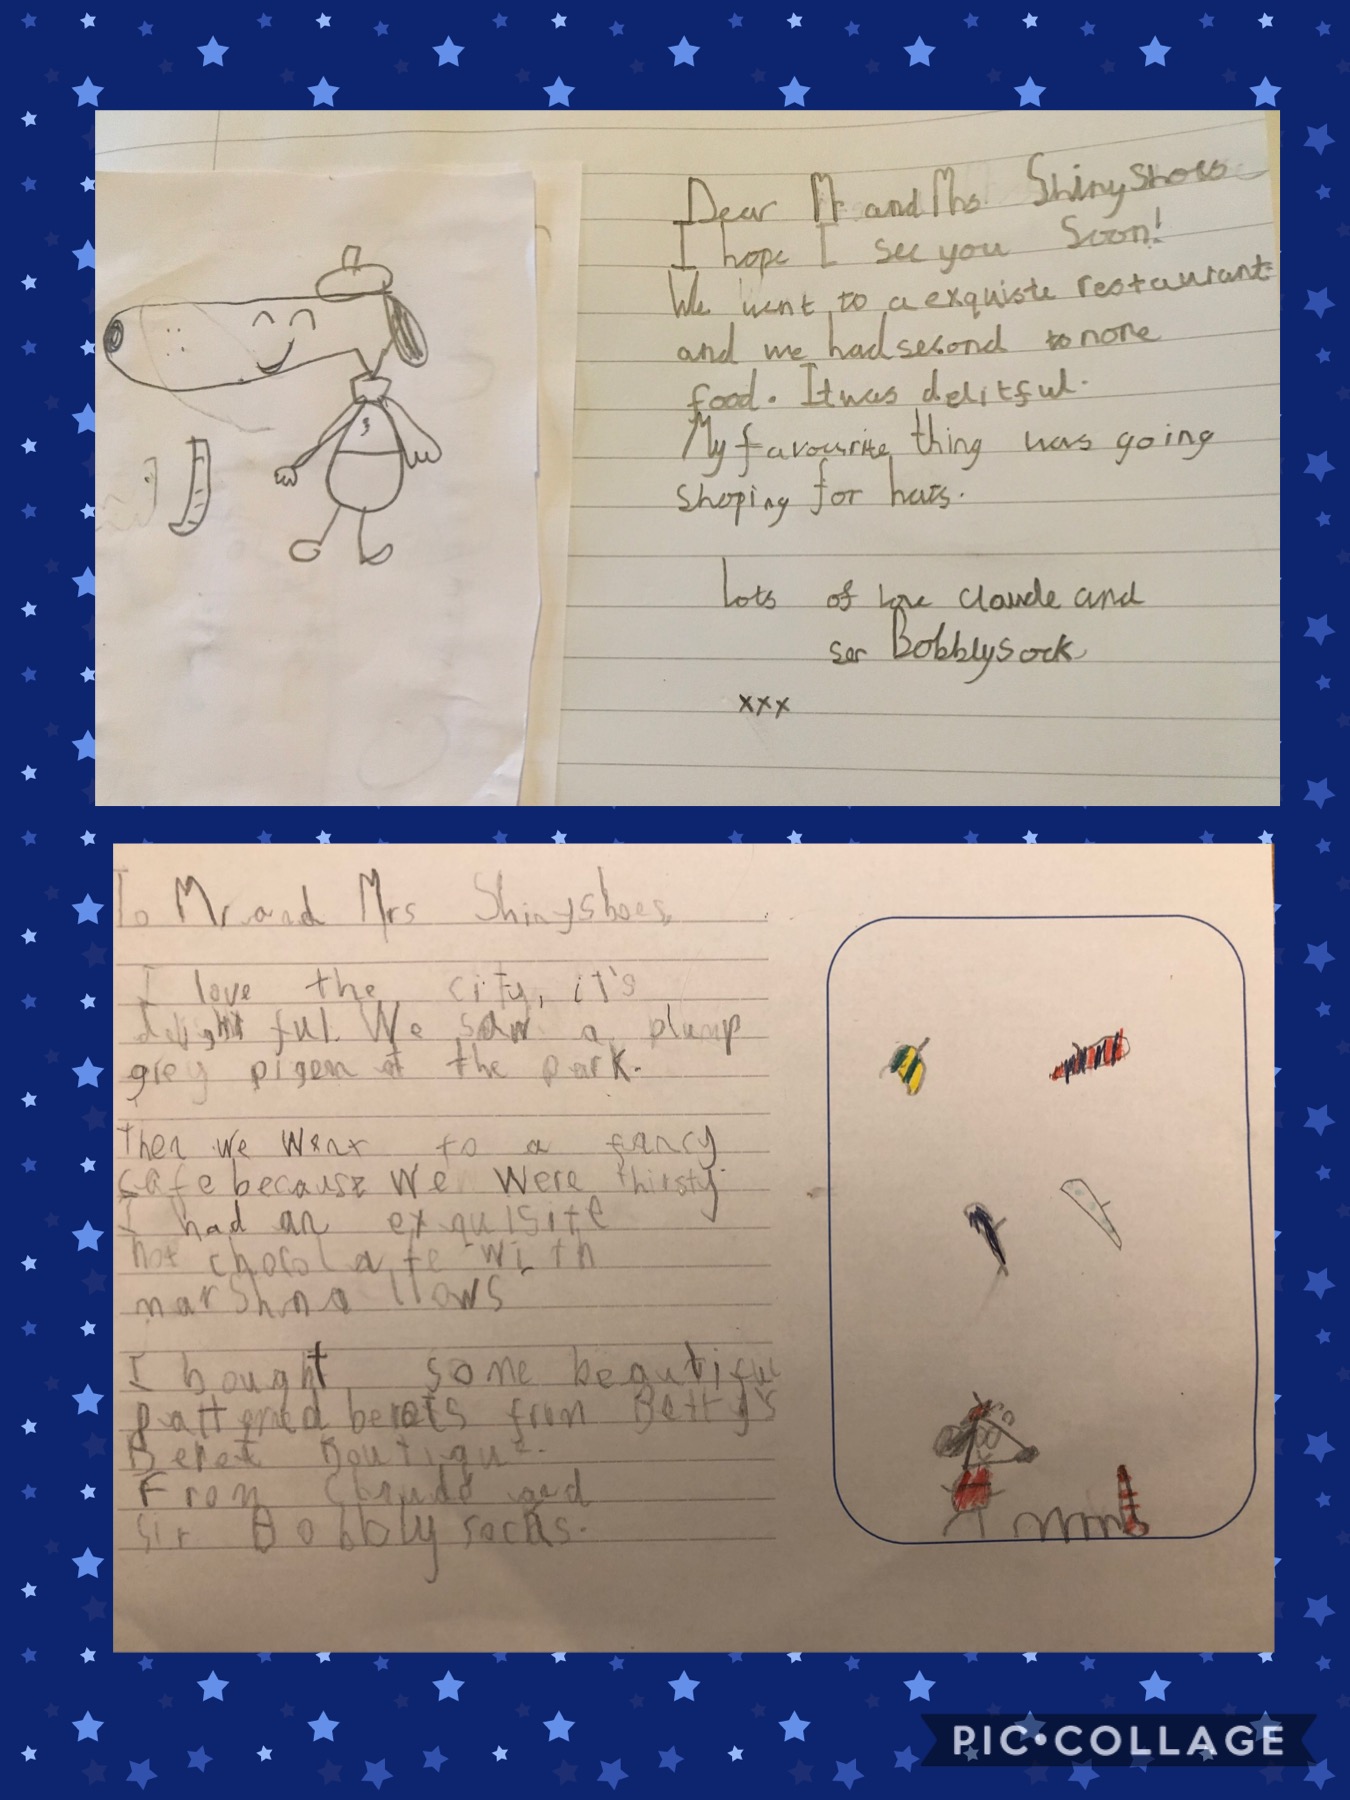 Dear Mr and Mrs Shinyshoes
I hope I see you Soon!
We went to a exquiste restaurant
and we had second to none
food. It was delitful.
My favourite thing was going
Shoping for hats.
Lots of love Claude and
ser Bobblysock
xxx
To Mr and Mrs Shinyshoes,
I love the city, it's
delightful. We saw a plump
grey pigeon at the park.
Then we went to a fancy
cafe because we were thirsty.
I had an exquisite
hot chocolate with
marshmallows
I bought some beautiful
patterned berets from Betty's
Beret Boutique.
From Claude and
Sir Bobbly socks.
PIC•COLLAGE